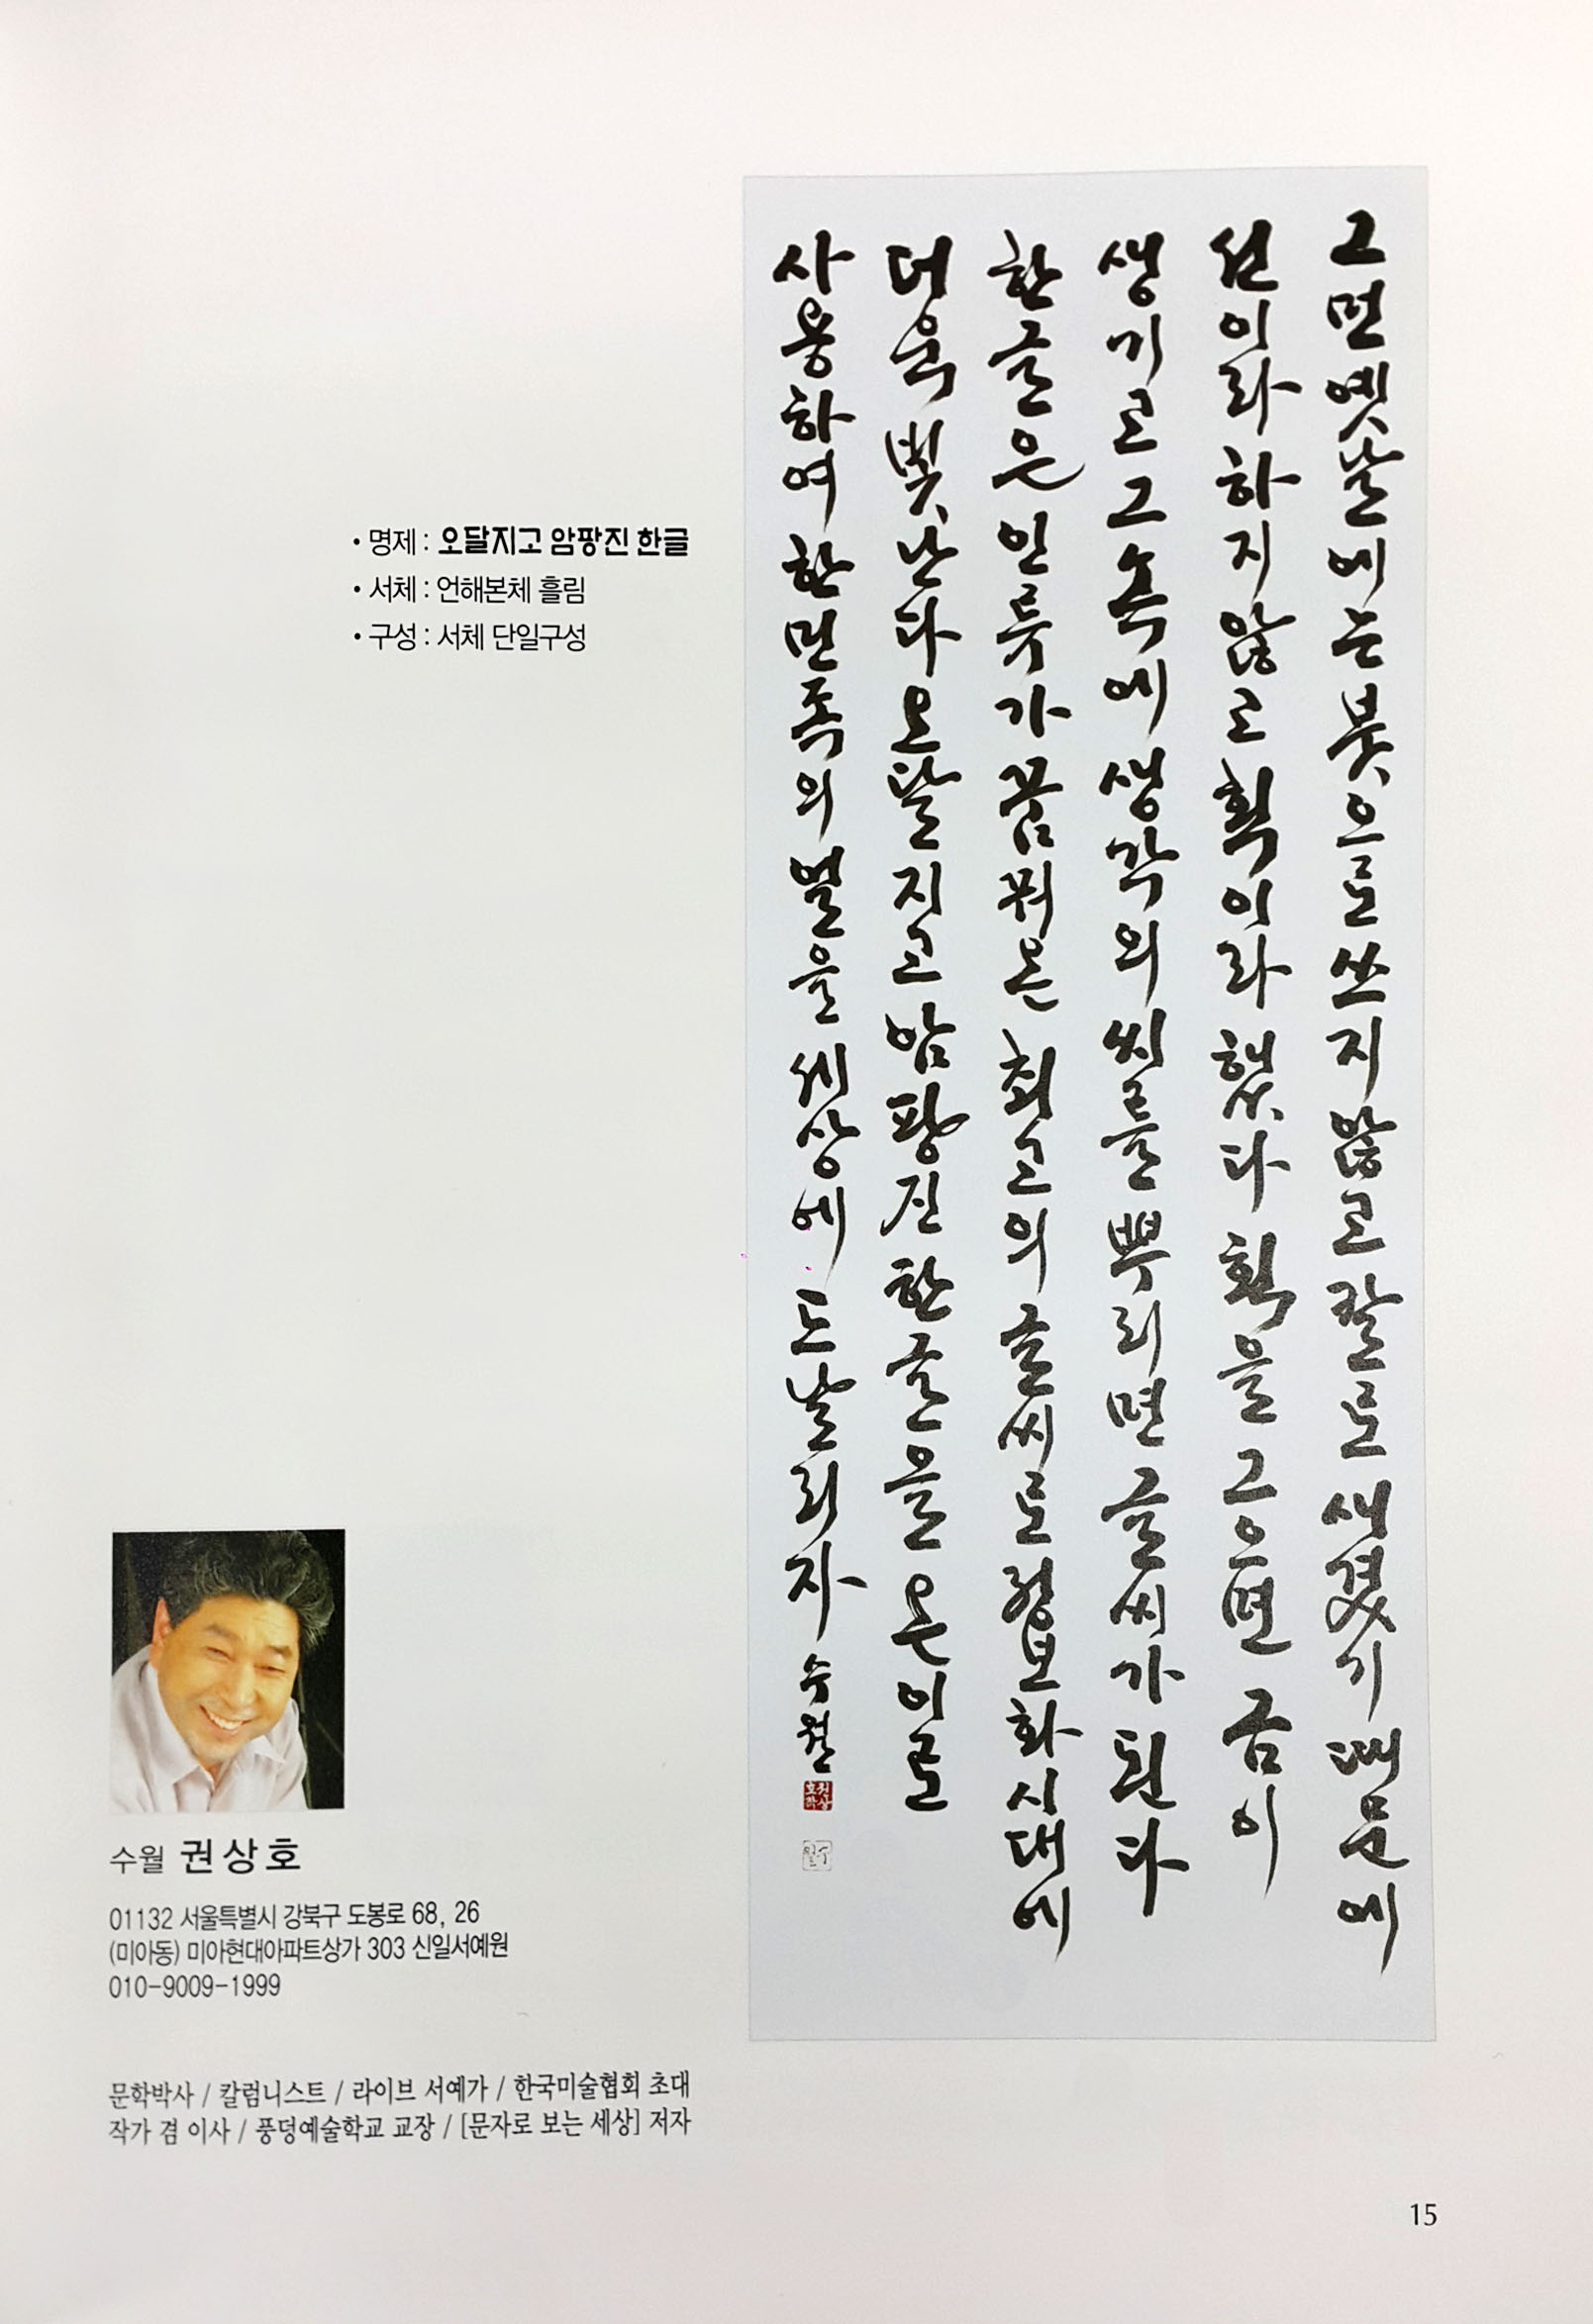 그면옛날에는붓으로쓰지않고칼로새겼기때문에
선이라하지않고획이라했다획을그으면금이
생기고그속에생각의씨를뿌리면글씨가된다
한글은인류가꿈꿔온최고의글씨로정보화시대에
더욱빛난다오달지고암팡진한글을온이로
사용하여한민족의멀을세상에드날리자수월
• 명제 : 오달지고 암팡진 한글
• 서체 : 언해본체 흘림
• 구성 : 서체 단일구성
수월 권상호
01132 서울특별시 강북구 도봉로 68, 26
(미아동) 미아현대아파트상가 303 신일서예원
010-9009-1999
문학박사 / 칼럼니스트 / 라이브 서예가 / 한국미술협회 초대
작가 겸 이사 / 풍덩예술학교 교장 / [문자로 보는 세상] 저자
15